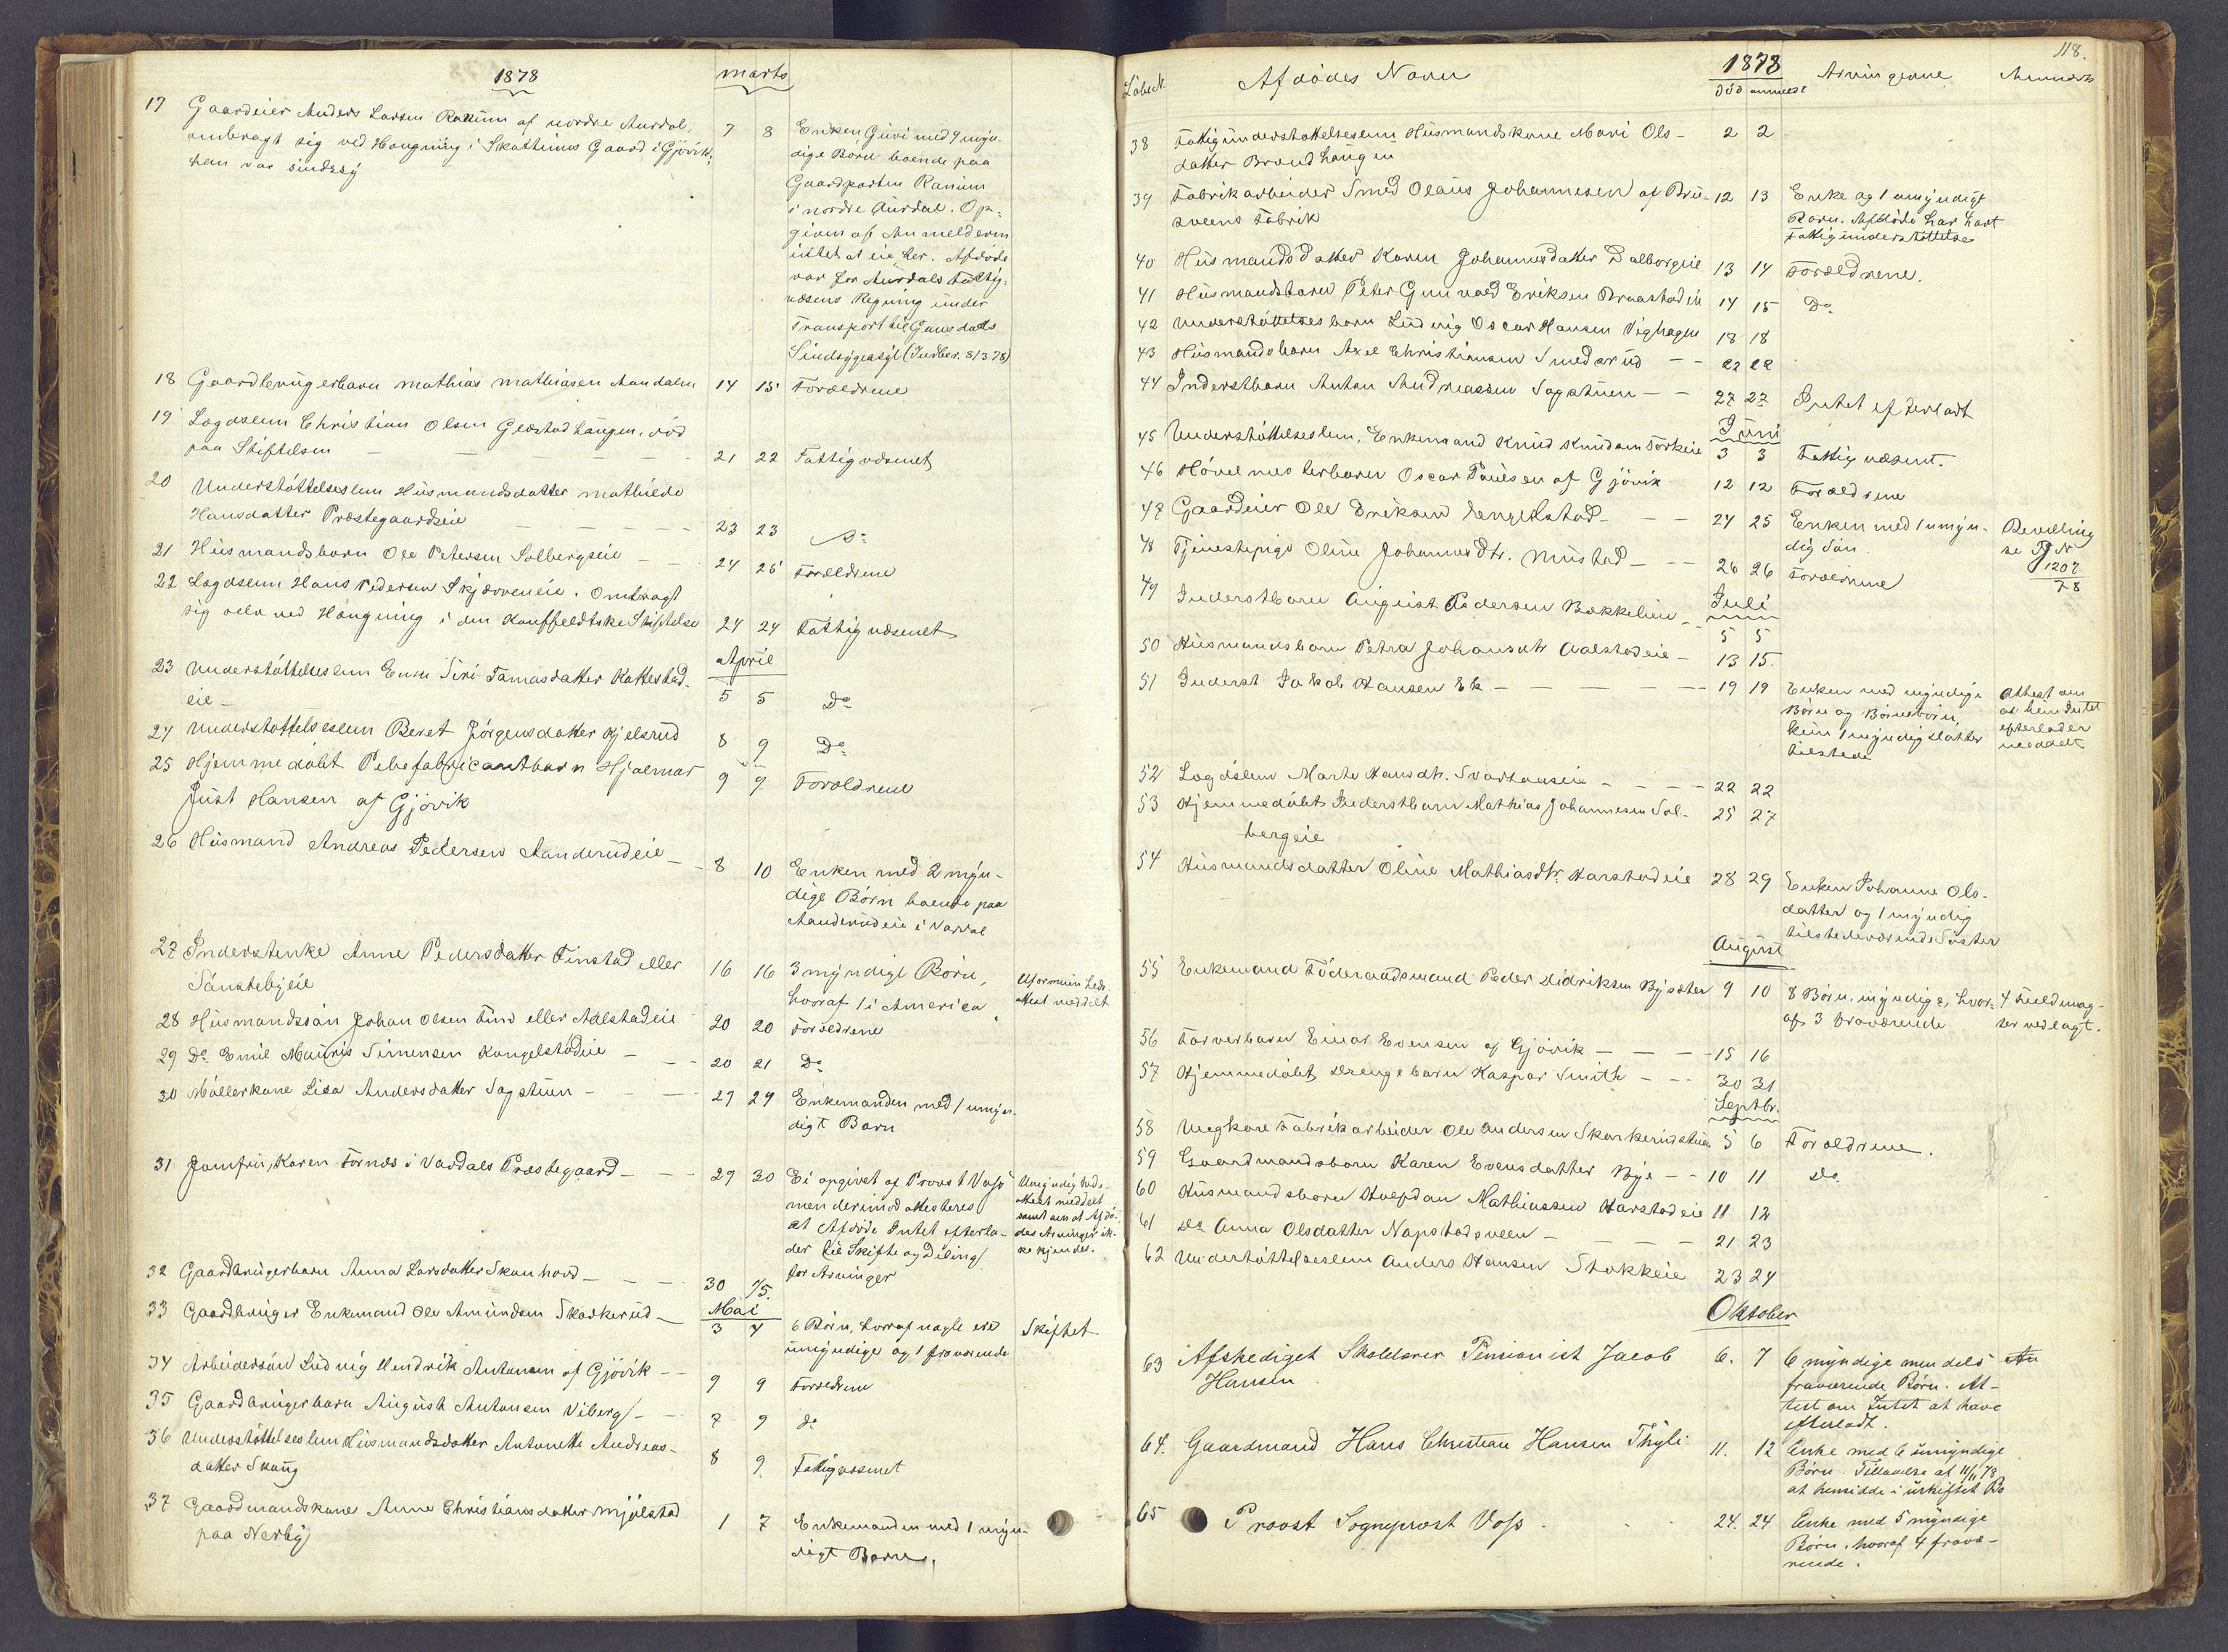 1878
marts
17 Gaardeier Anders Larsen Ranum af nordre Aurdal, 7 8 Enken Guri med 9 myn-
ombragt sig ved Hængning i Skattums Gaard i Gjövik; dige Börn boende paa
han var sindssyg Gaardparten Ranum
i nordre Aurdal. Op-
given af Anmelderen
intet at eie her. Afdöde
var for Aurdals Fattig-
væsens Regning under
Transport til Gausdals
Sindsygeasyl (Indber. 8/3 78)
18 Gaardbrugerbarn Mathias Mathiasen Aandalen 14 15 Forældrene
19 Lægdslem Christian Olsen haugen, död
paa Stiftelsen 21 22 Fattigvæsenet
20 Understöttelseslem Husmandsdatter Mathilde
Hansdatter Præstegaardseie 23 23 Do
21 Husmandsbarn Ole Petersen Solbergseie 24 25 Forældrene
22 Lægdslem Hans Pedersen Skjærveneie. Ombragt
sig selv ved Hængning i den Kauffeldtske Stiftelse 24 24 Fattigvæsenet
April
23 Understöttelseslem Enke Siri Tamasdatter Kattestad-
eie 5 5 Do
24 Understöttelseslem Beret Jörgensdatter Hjelsrud 8 9 Do
25 Hjemmedöbt Pibefabricantbarn Hjalmar 9 9 Forældrene
Just Hansen af Gjövik
26 Husmand Andreas Pedersen Aanderudeie 8 10 Enken med 2 myn-
dige Börn boende paa
Aanderudeie i Vardal
27 Inderstenke Anne Pedersdatter Finstad eller 16 16 3 myndige Börn, Uformuenheds-
Sönstebyeie hvoraf 1 i America attest meddelt
28 Husmandssön Johan Olsen Tind eller Aalstadeie 20 20 Forældrene
29 Do Emil Mauris Simensen Kongelstadeie 20 21 Do
30 Möllerkone Lisa Andersdatter Sagstuen 27 29 Enkemanden med 1 umyn-
digt Barn
31 Jomfru, Karen Fornæs i Vardals Præstegaard 29 30 Ei opgivet af Provst Voss Umyndigheds-
men derimod attesteres attest meddelt
at Afdöde Intet efterla- samt om at Afdö-
der til Skifte og Deling des Arvinger ik-
for Arvinger ke kjendes.
32 Gaardbrugerbarn Anna Larsdatter Skonhovd 30 1/5.
Mai
33 Gaardbruger Enkemand Ole Amundsen Skarkerud 3 4 6 Börn, hvoraf nogle ere Skiftet
umyndige og 1 fraværende
34 Arbeidersön Ludvig Hendrik Antonsen af Gjövik 9 9 Forældrene
35 Gaardbrugerbarn August Antonsen Viberg 7 9 do
36 Understöttelseslem Husmandsdatter Antonette Andreas-
datter Skaug 8 9. Fattigvæsenet
37 Gaardmandskone Anne Christiansdatter Mjölstad
paa Nerby 1 7 Enkemanden med 1 myn-
digt Barn.
118.
Löbe N. Afdödes Navn 1878 Arvingerne Anmærk
död anmeldt
38 Fattigunderstöttelseslem Husmandskone Mari Ols- 2 2
datter Brændhaugen
39 Fabrikarbeider Smed Olaus Johannesen af Bru- 12 13 Enke og 1 umyndigt
sveens Fabrik Barn. Afdöde har havt
Fattigunderstöttelse
40 Husmandsdatter Karen Johannesdatter Dalborgeie 13 14 Forældrene.
41 Husmandsbarn Peter Gunvald Eriksen Braastadeie 14 15 Do
42 Understöttelsesbarn Ludvig Oscar Hansen Vighagen 18 18
43 Husmandsbarn Axel Christiansen Smedsrud 22 22
44 Inderstbarn Anton Andreassen Sagstuen 27 27 Intet efterladt
Juni
45 Understöttelseslem, Enkemand Knud Knudsen Törkeie 3 3 Fattigvæsent.
46 Hövelmesterbarn Oscar Paulsen af Gjövik 12 12 Forældrene
47 Gaardeier Ole Eriksen Kongelstad 24 25 Enken med 1 umyn- Bevilling
dig Sön. se JN
48 Tjenestepige Oline Johannesdtr. Mustad 26 26 Forældrene 1207
78
Juli
49 Inderstbarn August Pedersen Bækkelien 5 5
50 Husmandsbarn Petra Johansdtr Aalstadeie 13 15.
51 Inderst Jakob Hansen Ek 19 19 Enken med myndige Attest om
Börn og Börnebörn, at han Intet
kun 1 myndig Datter efterlader
tilstede meddelt
52 Lægdslem Marte Hansdtr. Svartaaseie 22 22
53 Hjemmedöbt Inderstbarn Mathias Johannesen Sol- 25 27
bergeie
54 Husmandsdatter Oline Mathiasdtr. Harstadeie 28 29 Enken Johanne Ols-
datter og 1 myndig
tilstedeværende Söster
August
55 Enkemand Föderaadsmand Peder Didriksen Bysæter 9 10 8 Börn, myndige, hvor- 4 Fuldmag-
af 3 fraværende ter vedlagt.
56 Farverbarn Einar Evensen af Gjövik 15 16
57 Hjemmedöbt Drengebarn Kaspar Smith 30 31
Septbr.
58 Ungkarl Fabrikarbeider Ole Andersen Skarkerudstuen 5 6 Forældrene.
59 Gaardmandsbarn Karen Evensdatter Bye 10 11 Do.
60 Husmandsbarn Halfdan Mathiassen Harstadeie 11 12
61 Do Anna Olsdatter Napstadsveen 21 23
62 Understöttelseslem Anders Hansen Stokkeie 23 24
Oktober
63 Afskediget Skolelærer Pensionist Jacob 6. 7 6 myndige men dels An
Hansen. fraværende Börn. At-
test om Intet at have
efterladt.
64. Gaardmand Hans Christian Hansen Thyli 11. 12 Enke med 6 umyndige
Börn. Tilladelse af 11/11 78
at hensidde i uskiftet Bo
65 Provst Sogneprest Voss 24. 24 Enke med 5 myndige
Börn, hvoraf 4 fravæ-
rende.